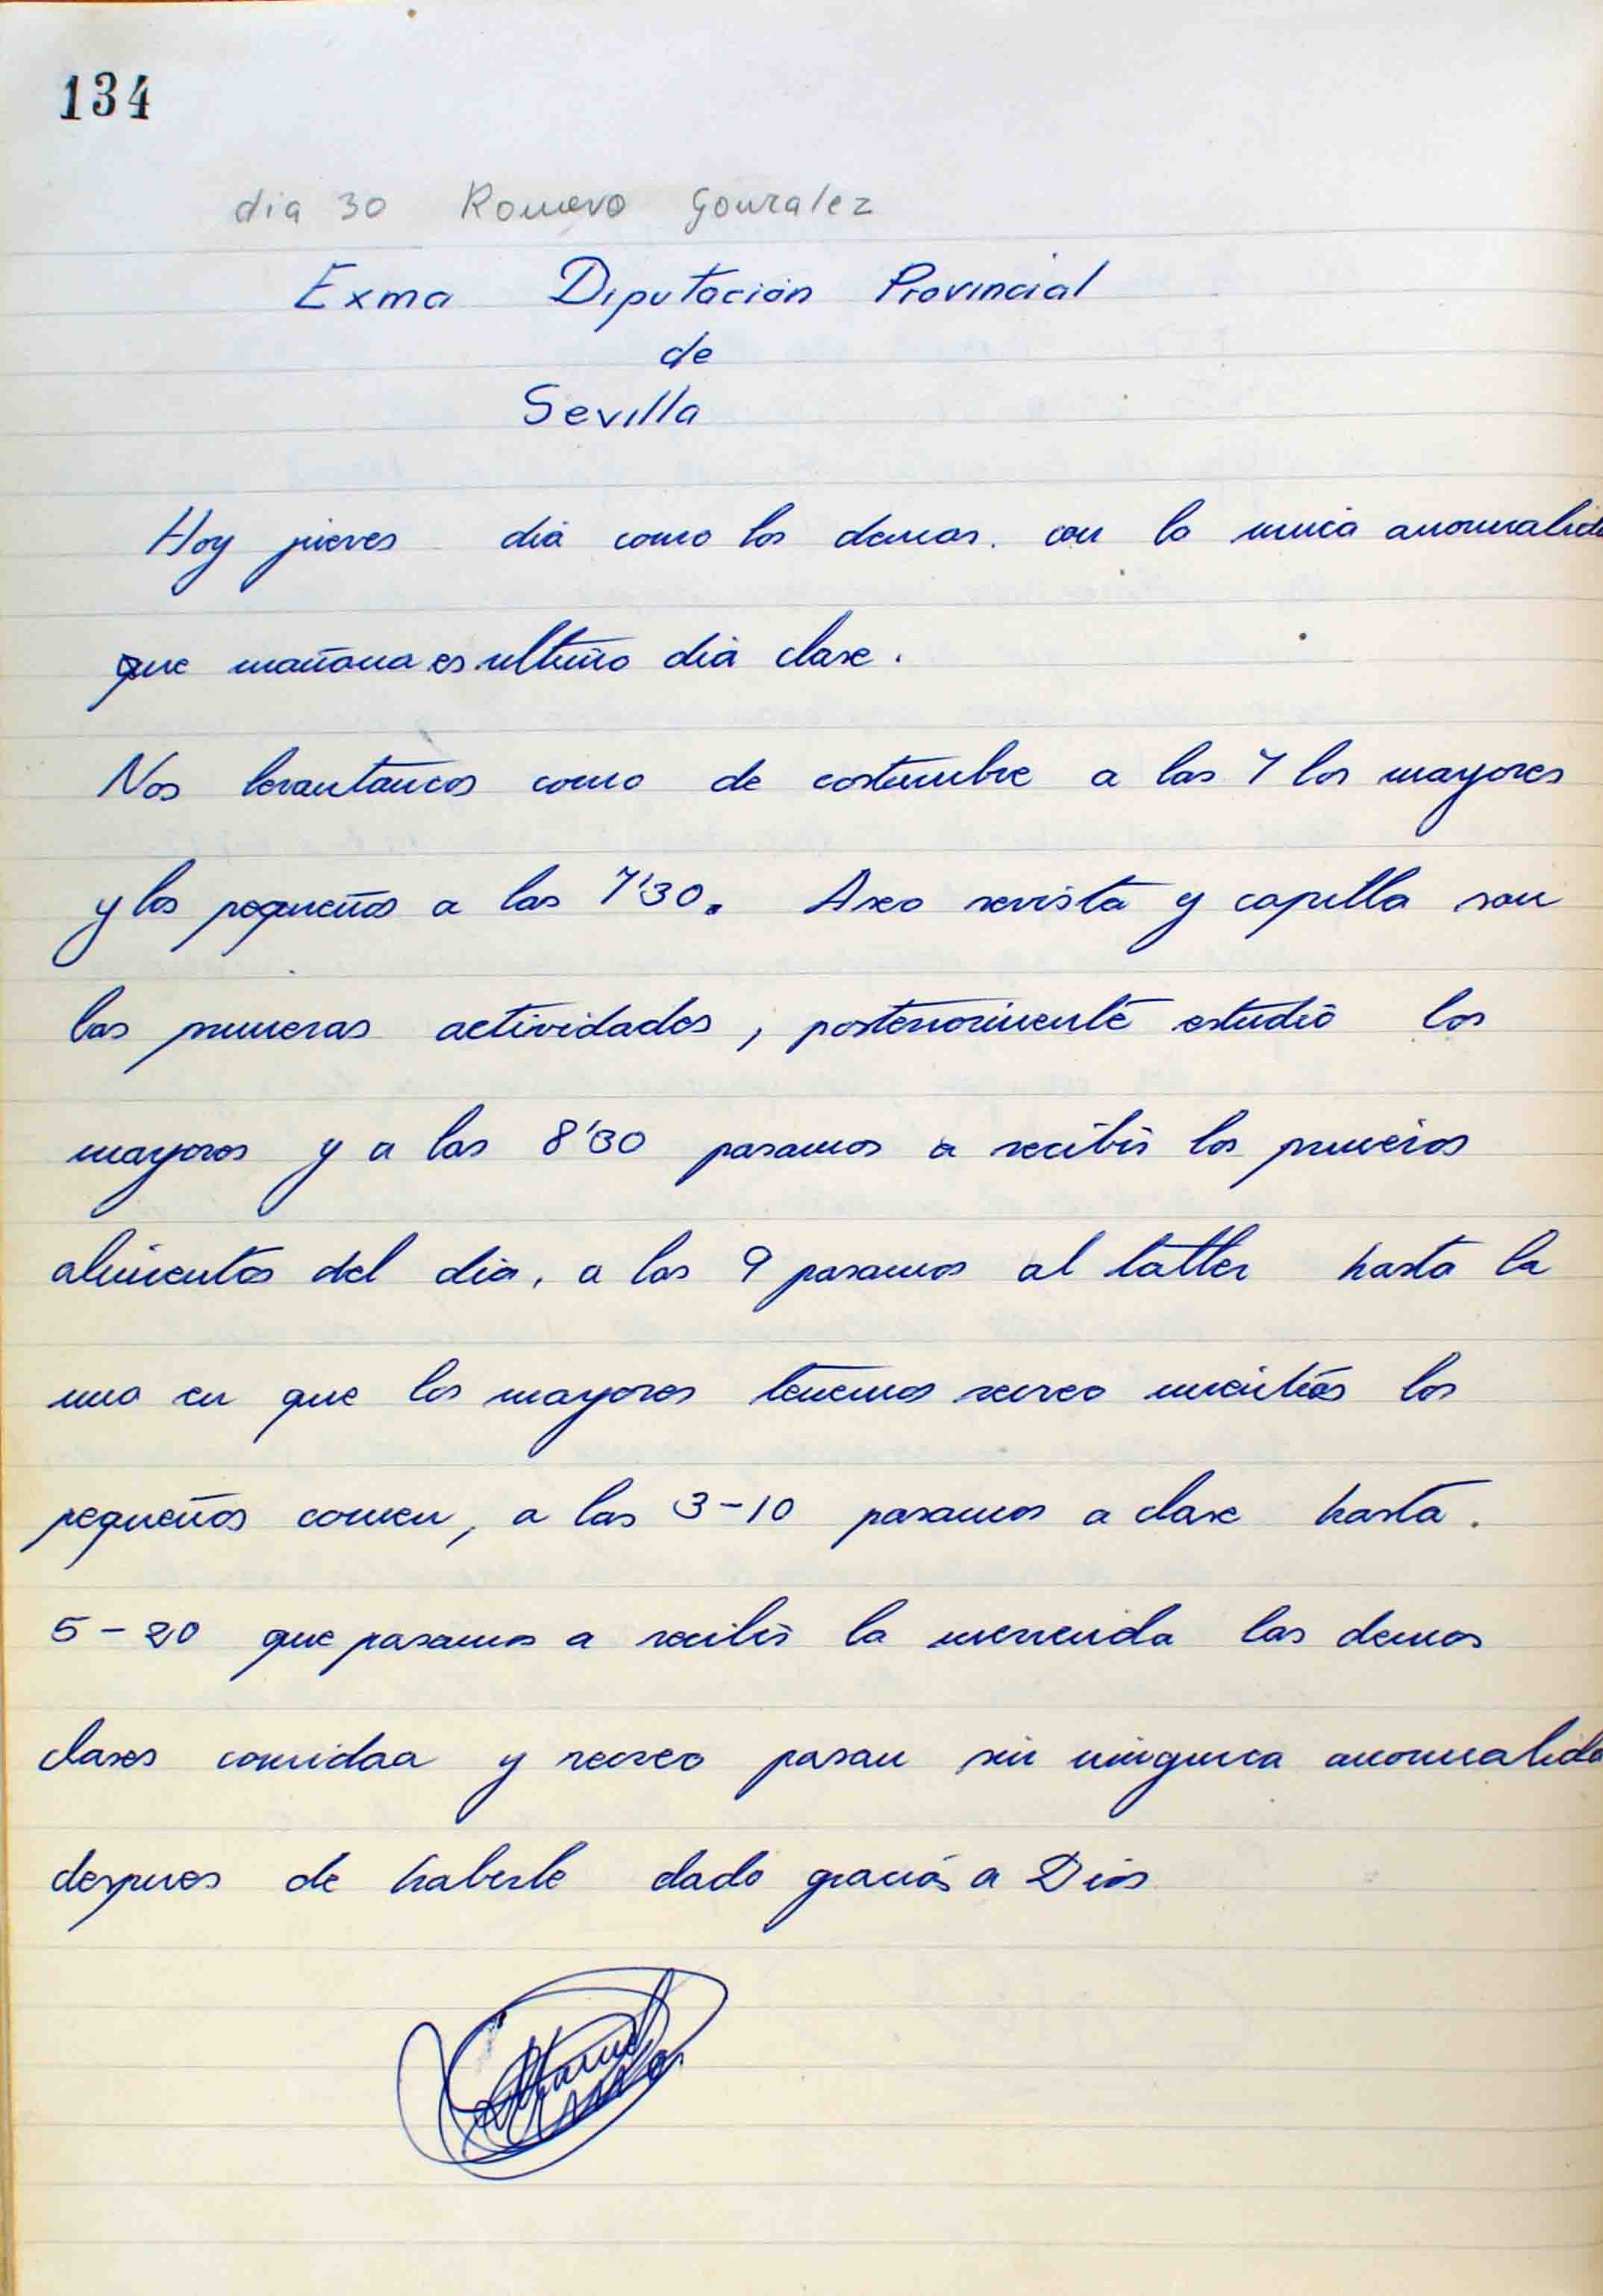 134
dia 30 Romero Gonzalez
Exma Diputación Provincial
de
Sevilla
Hoy jueves dia como los demas. con la unica anormalida
que mañana es ultimo dia clase.
Nos levantamos como de costumbre a las 7 los mayores
y los pequeños a las 7'30. Aseo revista y capilla son
las primeras actividades, posteriormente estudio los
mayores y a las 8'30 pasamos a recibir los primeros
alimentos del dia, a las 9 pasamos al taller hasta la
una en que los mayores tenemos recreo mientras los
pequeños comen, a las 3-10 pasamos a clase hasta.
5-20 que pasamos a recibir la merienda las demas
clases comidaa y recreo pasan sin ninguna anormalida
despues de haberle dado gracias a Dios